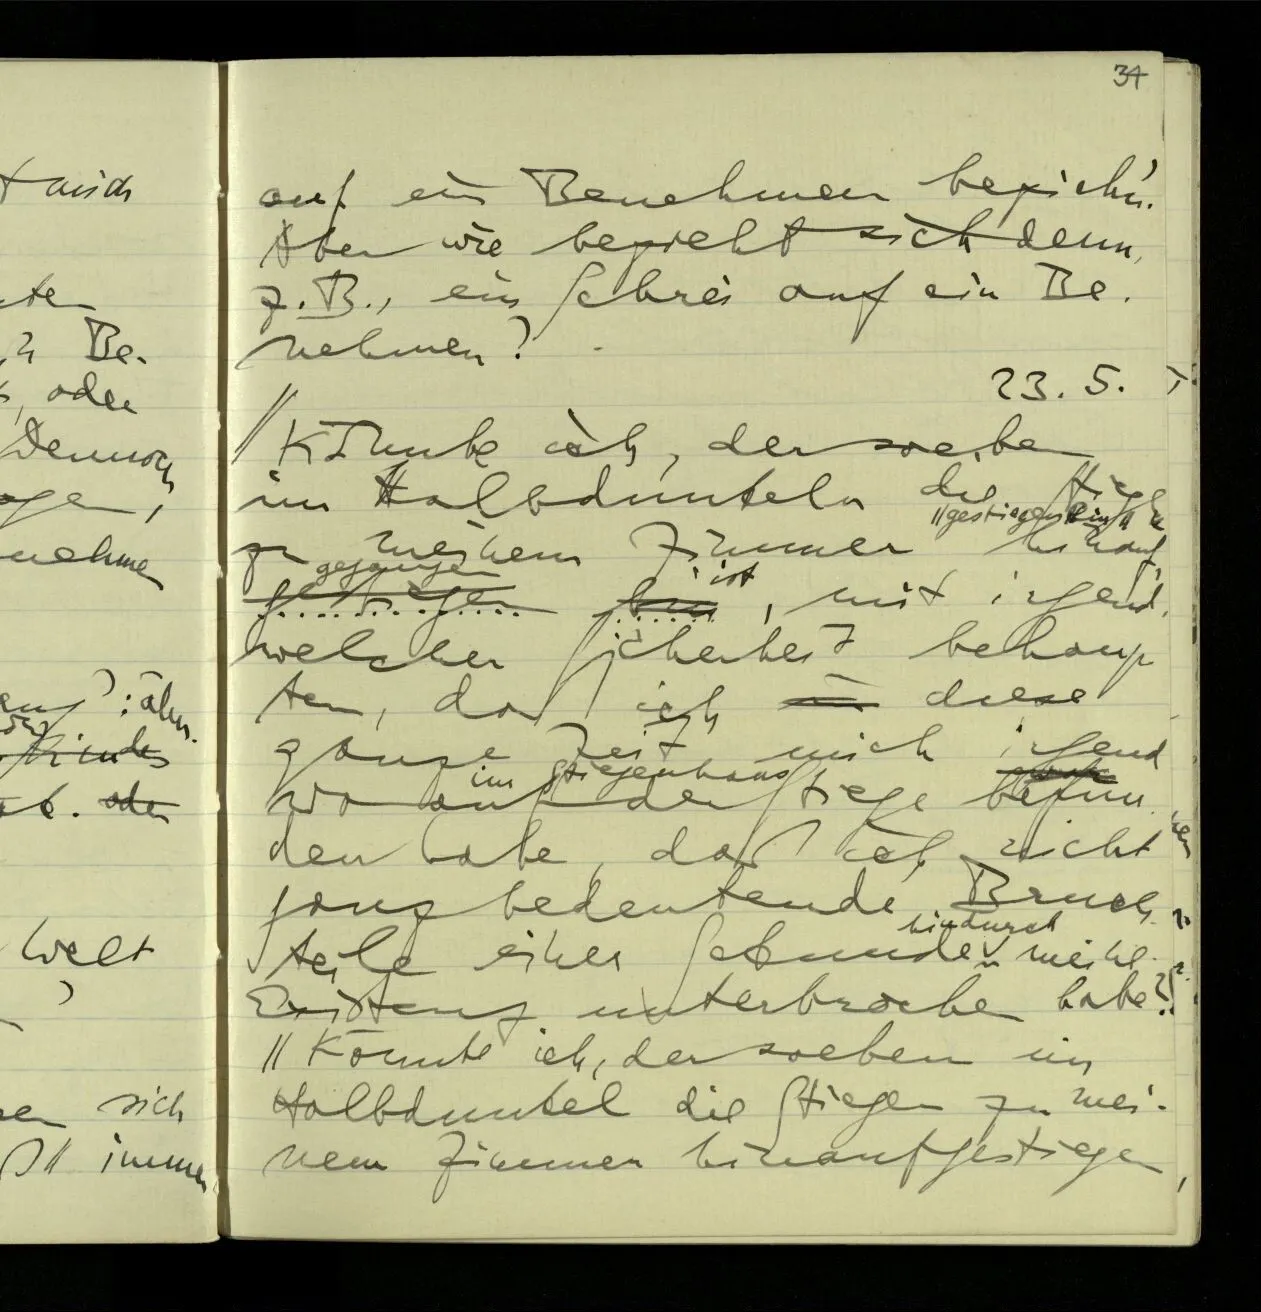 t auch
ten
Be-
, oder
Dennoch
nehme
? : ähn-
Kindes
oder
Welt
?
sich
ß" imme
34
auf ein Benehmen bezieh'n.
Aber wie bezieht sich denn,
z.B., ein Schrei auf ein Be-
nehmen?
23. 5.
// Könnte ich, der soeben
im Halbdunkeln die Stiege
//gestiegen bin//
zu meinem Zimmer hinauf
gegangen
gestiegen bin ist, mit irgend
welcher Sicherheit behaup
ten, daß ich diese
ganze Zeit mich irgend
im Stiegenhaus
wo auf der Stiege befun
den habe, daß ich nicht
ganz bedeutende Bruch
hindurch
teile einer Sekunde meine
Existenz unterbrochen habe?
// Könnte ich, der soeben im
Halbdunkel die Stiegen zu mei-
nem Zimmer hinaufgestiegen